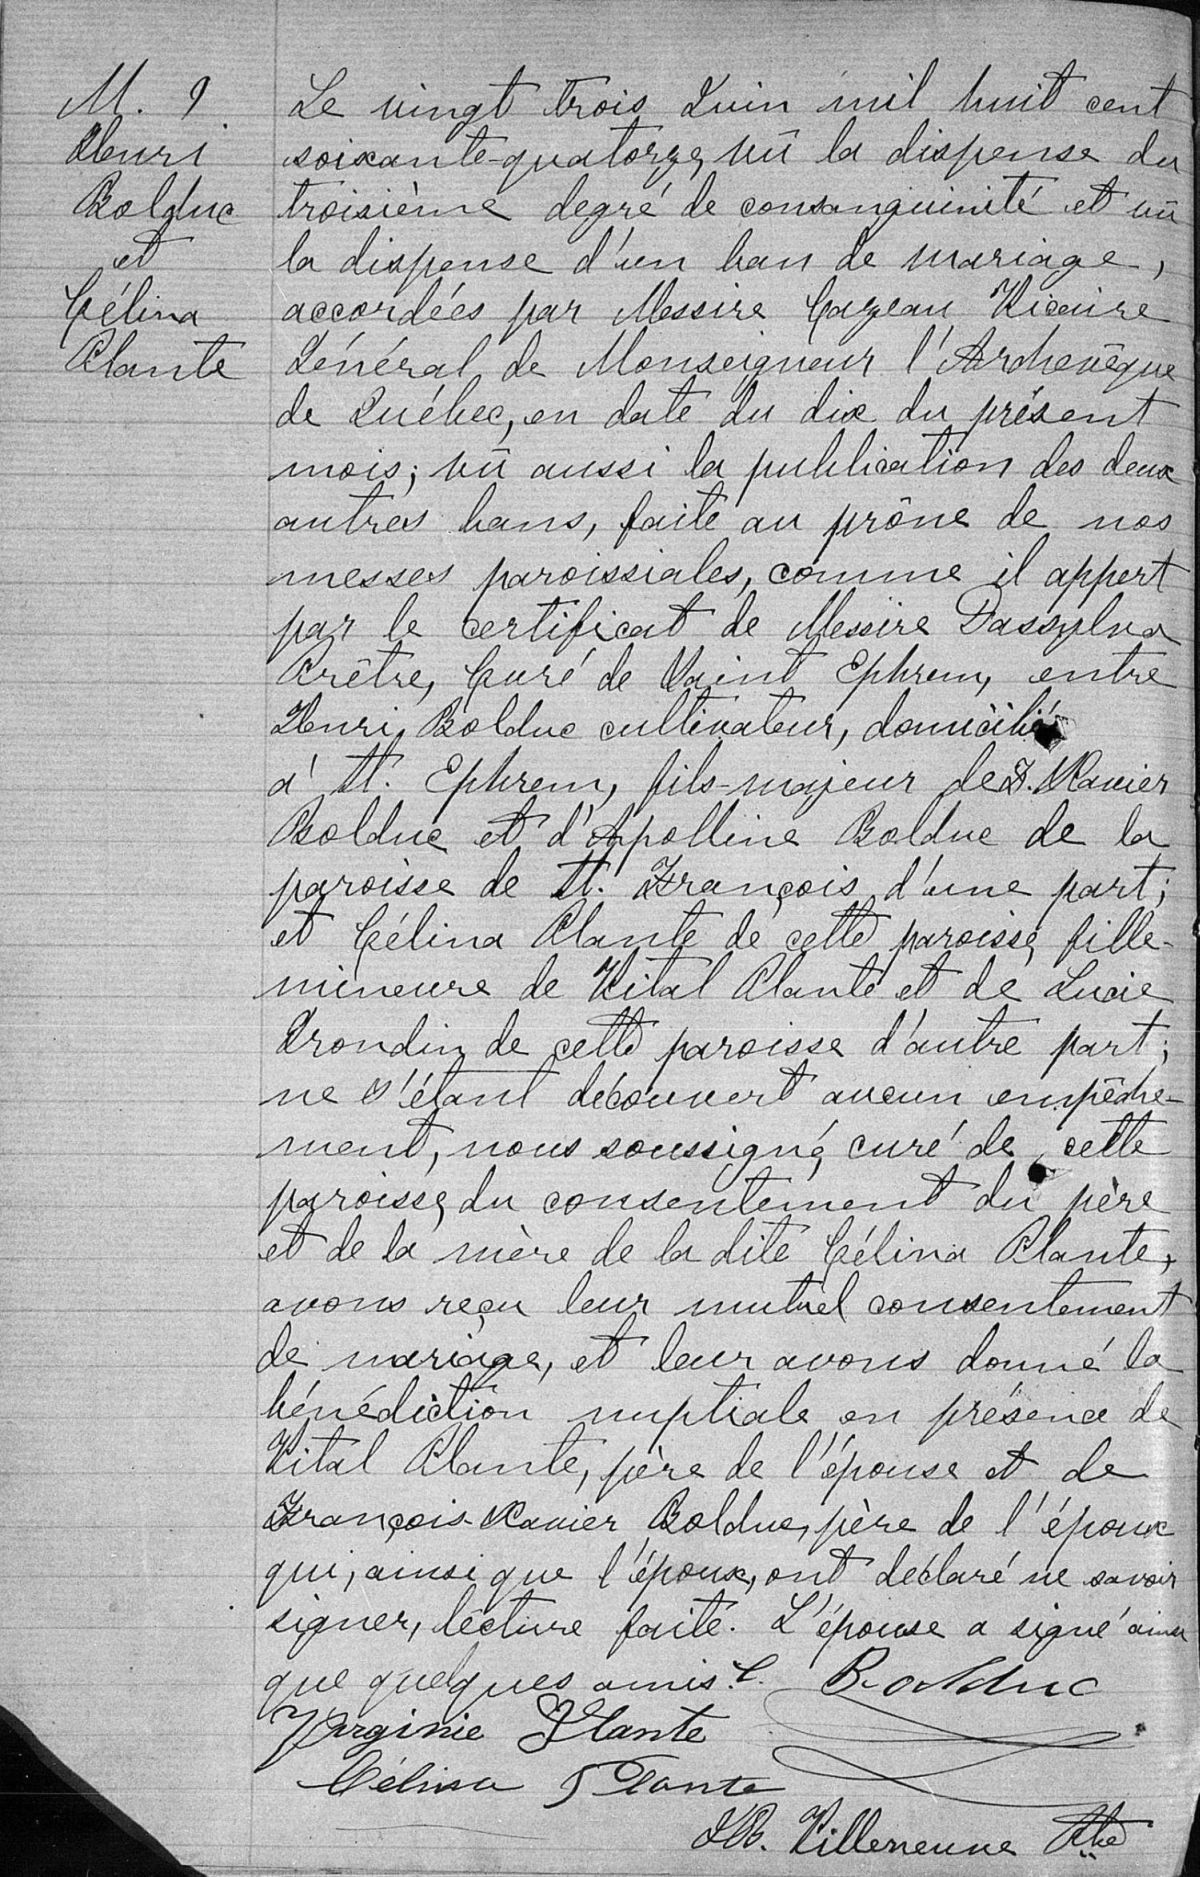 M. 9
Henri
Bolduc
et
Célina
Plante
Le vingt trois Juin mil huit cent
soixante-quatorze, vû la dispense du
troisième degré de consanguinité et vû
la dispense d'un ban de mariage,
accordées par Messire Cazeau Vicaire
Général de Monseigneur l'Archevêque
de Québec, en date du dix du présent
mois; vû aussi la publication des deux
autres bans, faite au prône de nos
messes paroissiales, comme il appert
par le certificat de Messire Dassylva
Prêtre, Curé de Saint Ephrem, entre
Henri Bolduc cultivateur, domicilié
à St. Ephrem, fils-majeur de F. Xavier
Bolduc et d'Apolline Bolduc de la
paroisse de St. François, d'une part;
et Célina Plante de cette paroisse, fille-
mineure de Vital Plante et de Lucie
Grondin de cette paroisse d'autre part;
ne s'étant découvert aucun empêche-
ment, nous soussigné, curé de cette
paroisse, du consentement du père
et de la mère de la dite Célina Plante,
avons reçu leur mutuel consentement
de mariage, et leur avons donné la
bénédiction nuptiale en présence de
Vital Plante, père de l'épouse et de
François-Xavier Bolduc, père de l'époux
qui, ainsi que l'époux, ont déclaré ne savoir
signer, lecture faite. L'épouse a signé ainsi
que quelques amis. C. Bolduc
Virginie Plante
Célina Plante
J.B. Villeneuve Ptre